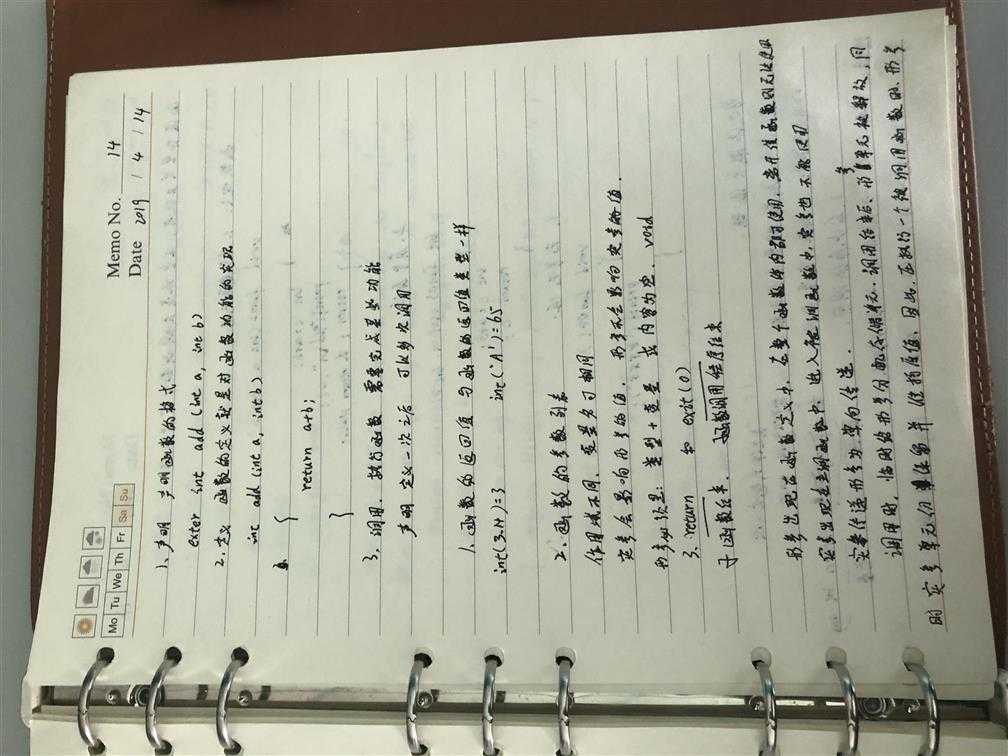 Memo No. 14
Date 2019 / 4 / 14
Mo Tu We Th Fr Sa Su
1、声明 声明函数的格式
exter int add (int a, int b)
2、定义 函数的定义就是对函数功能的实现
int add (int a, int b)
{
return a+b;
}
3、调用、执行函数 需要完成某些功能
声明定义一次之后 可以多次调用
1、函数的返回值 与函数的返回值类型一样
int(3.14)=3 int('A')=65
2、函数的参数列表
作用域不同、变量名可相同
实参会影响形参的值、形参不会影响实参的值.
形参必须是: 类型+变量 或内容为空、void
3、return 和 exit(0)
函数结束 函数调用程序结束
形参出现在函数定义中、在整个函数体内都可使用、离开该函数则无法使用
实参出现在主调函数中、进入被调函数中,实参也不能使用
实参传递形参为单向传递.
调用时,临时给形参分配存储单元、调用结束后、形参单元被释放,同
的实参单元仍保留并维持原值、因此、在执行一个被调用函数时、形参